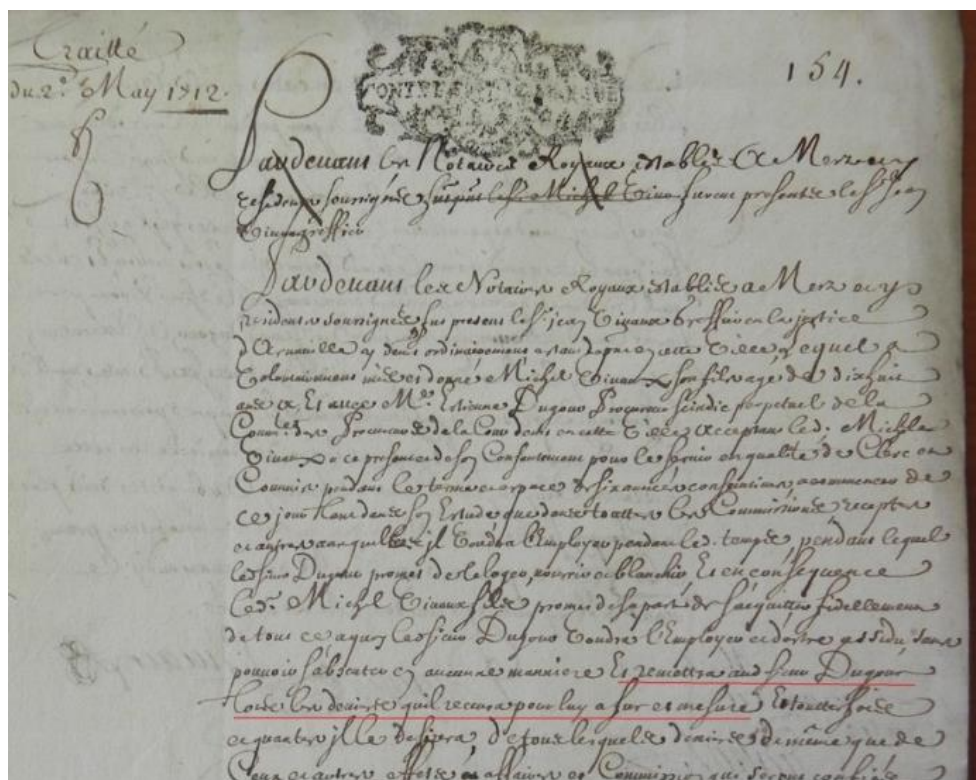 Traitté
du 2e. May 1712.
154.
Pardevant les Notaires Royaux establie a Metz y
residents soussignés fut present le Sr. Michel Vivaux furent presents le Sr Jean
Vivaux greffier
Pardevant les Notaires Royaux establie a Metz y
residents soussignés fus present le Sr. jean Vivaux Greffier en la justice
d'Ar y demt ordinairement estant de present en cette Ville, lequel a
Volontairement mis et donné Michel Vivaux son fils age de dixhuit
ans a Et avec Me. Estienne Dugour Procureur scindic perpetuel de la
Commté des Procureurs de la Cour demt en cette Ville acceptant led. Michel
Vivaux a ce present et de son Consentement pour le servir en qualité de Clerc et
Commis pendant le terme et espace de six années consecutives a commencer de
ce jour tant dans son Estude que dans touttes les Commissions receptes
et autres auxquelles il Voudra l'Employer pendant led. temps, pendant lequel
led sieur Dugour promet de le loger, nourrir et blanchir, Et en conséquence
led. Michel Vivaux fils promet de sa part de s'acquitter fidellement
de tout ce a quoy led sieur Dugour Voudra l'Employer et d'estre assidu sans
pouvoir s'absenter en aucune manniere Et remettra aud sieur Dugour
tous les deniers qu'il recevra pour luy a fur et mesure Et touttes fois
et quantes il le desirera, desquels deniers de même que de
Ceux et autres effets affaires et Commissions qui seront